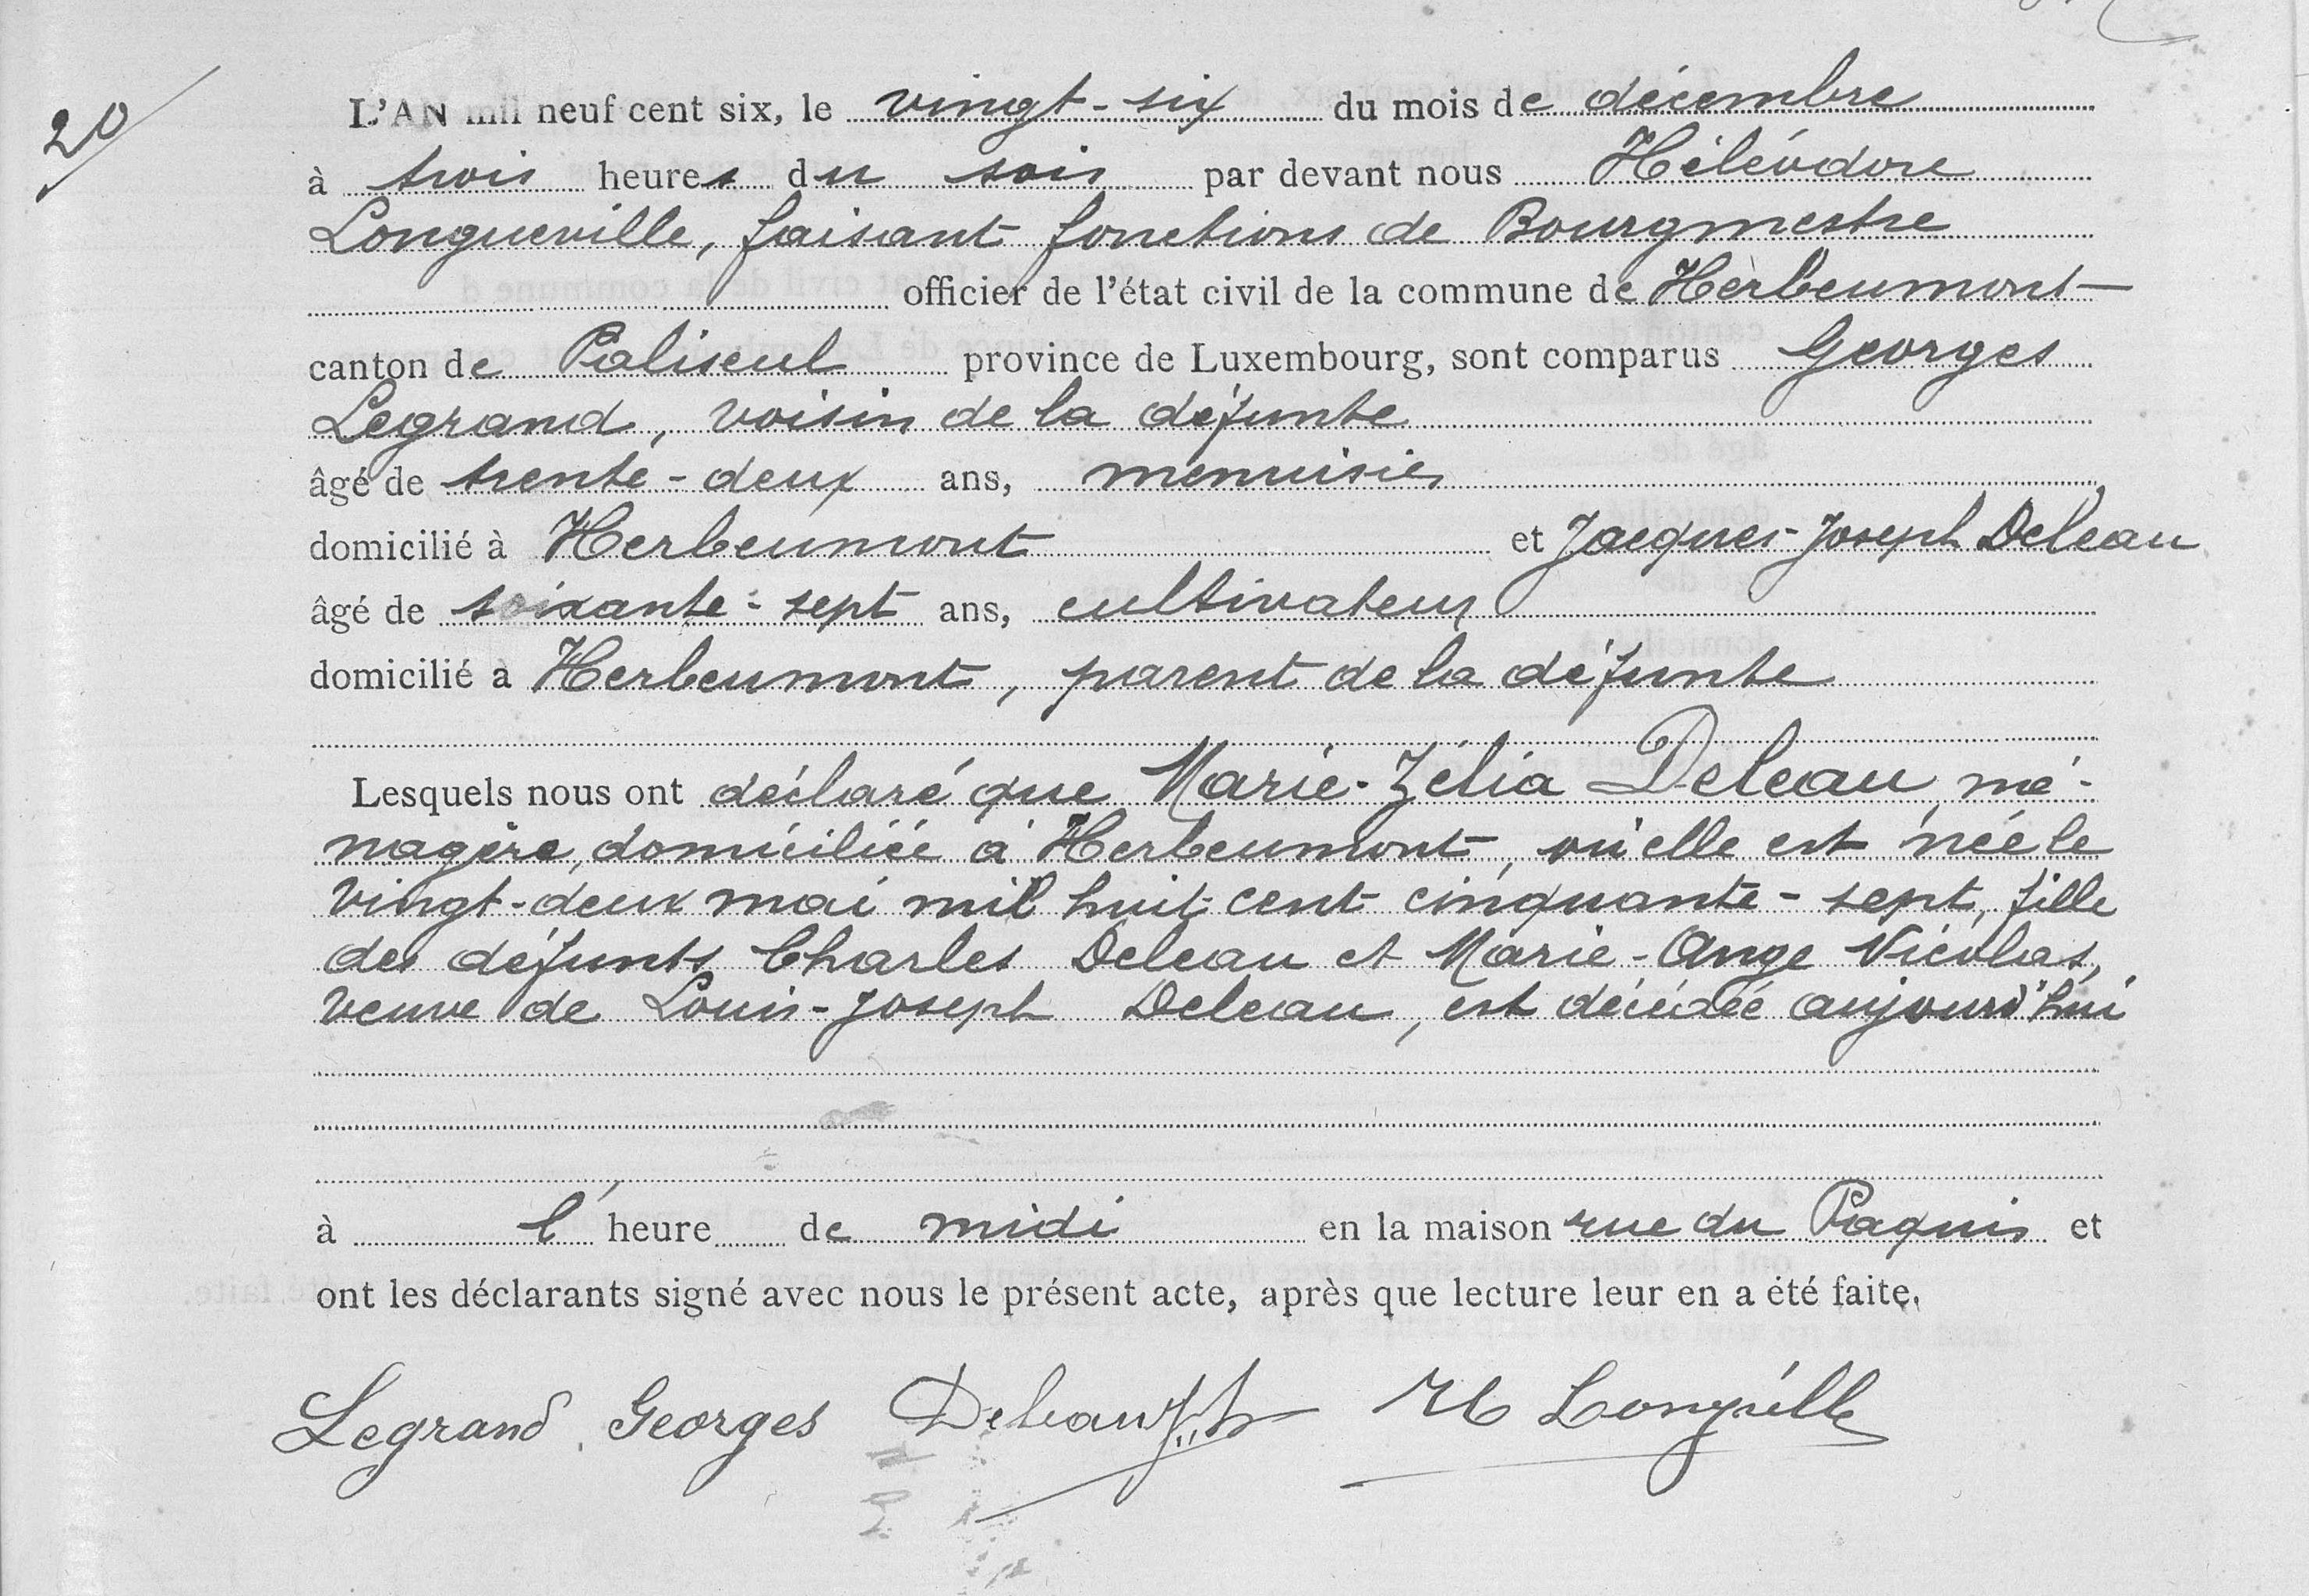 20
L'AN mil neuf cent six, le vingt-six du mois de décembre
à trois heures du soir par devant nous Héléodore
Longueville, faisant fonctions de Bourgmestre
officier de l'état civil de la commune de Herbeumont
canton de Paliseul province de Luxembourg, sont comparus Georges
Legrand, voisin de la défunte
âgé de trente-deux ans, menuisier
domicilié à Herbeumont et Jacques-Joseph Deleau
âgé de soixante-sept ans, cultivateur
domicilié à Herbeumont, parent de la défunte
Lesquels nous ont déclaré que Marie-Zélia Deleau, mé-
nagère, domiciliée à Herbeumont, où elle est née le
vingt-deux mai mil huit cent cinquante-sept, fille
des défunts Charles Deleau et Marie-Ange Nicolas,
veuve de Louis-Joseph Deleau, est décédée aujourd'hui
à l'heure de midi en la maison rue du Paquis et
ont les déclarants signé avec nous le présent acte, après que lecture leur en a été faite.
Legrand Georges Deleau H Longueville